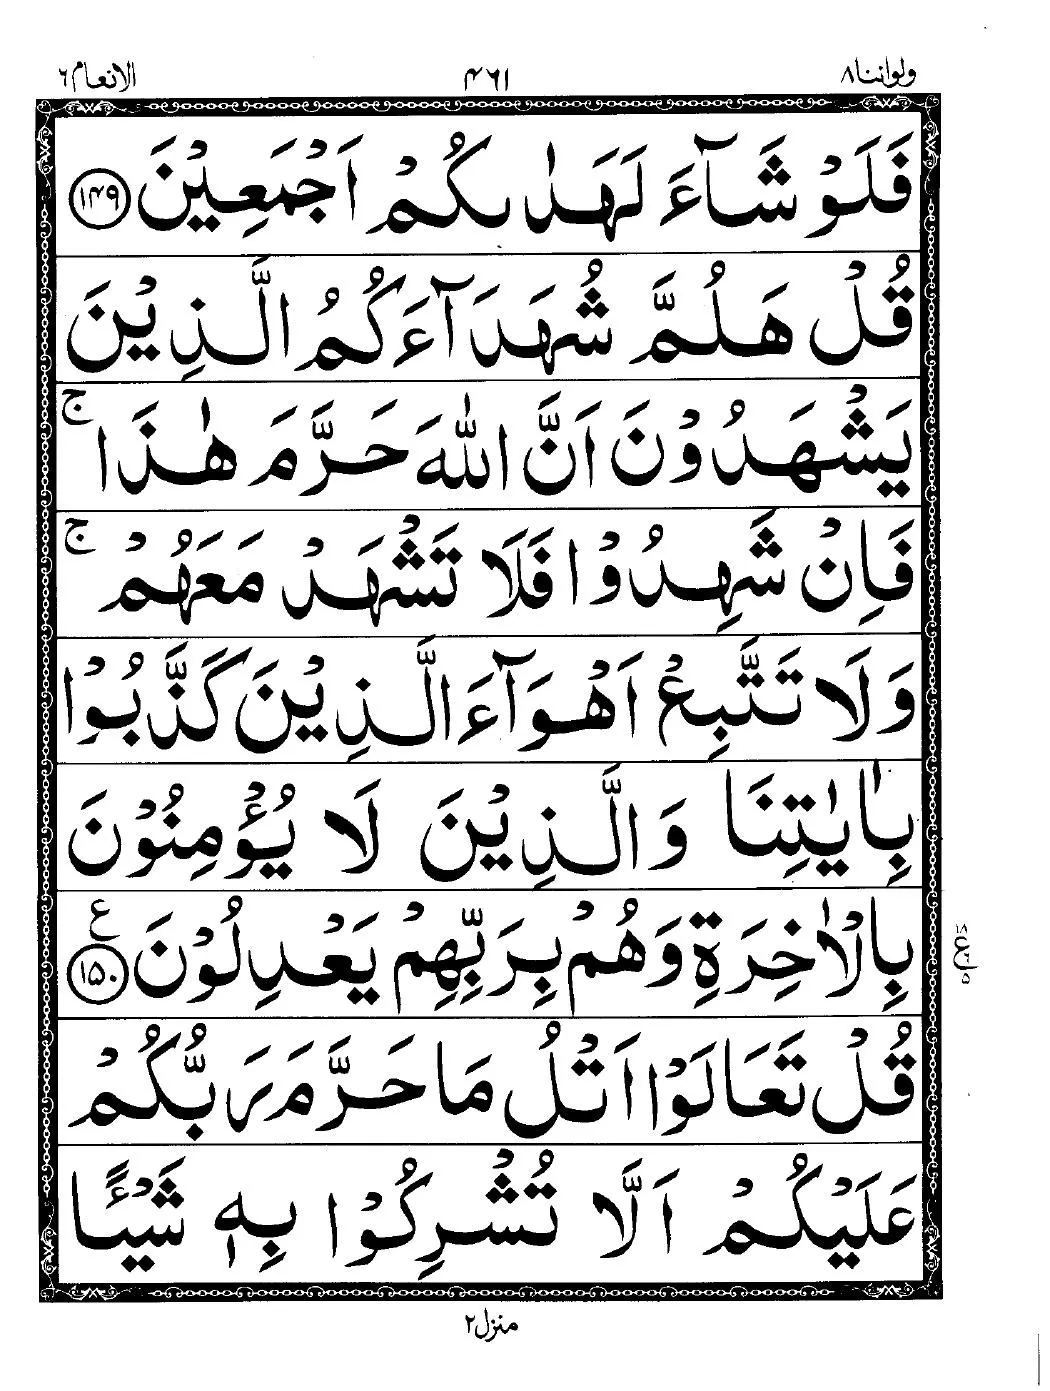 ولواننا۸ ۴۶۱ الانعام۶
فَلَوْ شَآءَ لَهَدٰىكُمْ اَجْمَعِيْنَ ۝۱۴۹
قُلْ هَلُمَّ شُهَدَآءَكُمُ الَّذِيْنَ
يَشْهَدُوْنَ اَنَّ اللّٰهَ حَرَّمَ هٰذَا ۚ
فَاِنْ شَهِدُوْا فَلَا تَشْهَدْ مَعَهُمْ ۚ
وَلَا تَتَّبِعْ اَهْوَآءَ الَّذِيْنَ كَذَّبُوْا
بِاٰيٰتِنَا وَالَّذِيْنَ لَا يُؤْمِنُوْنَ
بِالْاٰخِرَةِ وَهُمْ بِرَبِّهِمْ يَعْدِلُوْنَ ۝۱۵۰ ع
۱۸ ع ۵
قُلْ تَعَالَوْا اَتْلُ مَا حَرَّمَ رَبُّكُمْ
عَلَيْكُمْ اَلَّا تُشْرِكُوْا بِهٖ شَيْـًٔا
منزل۲